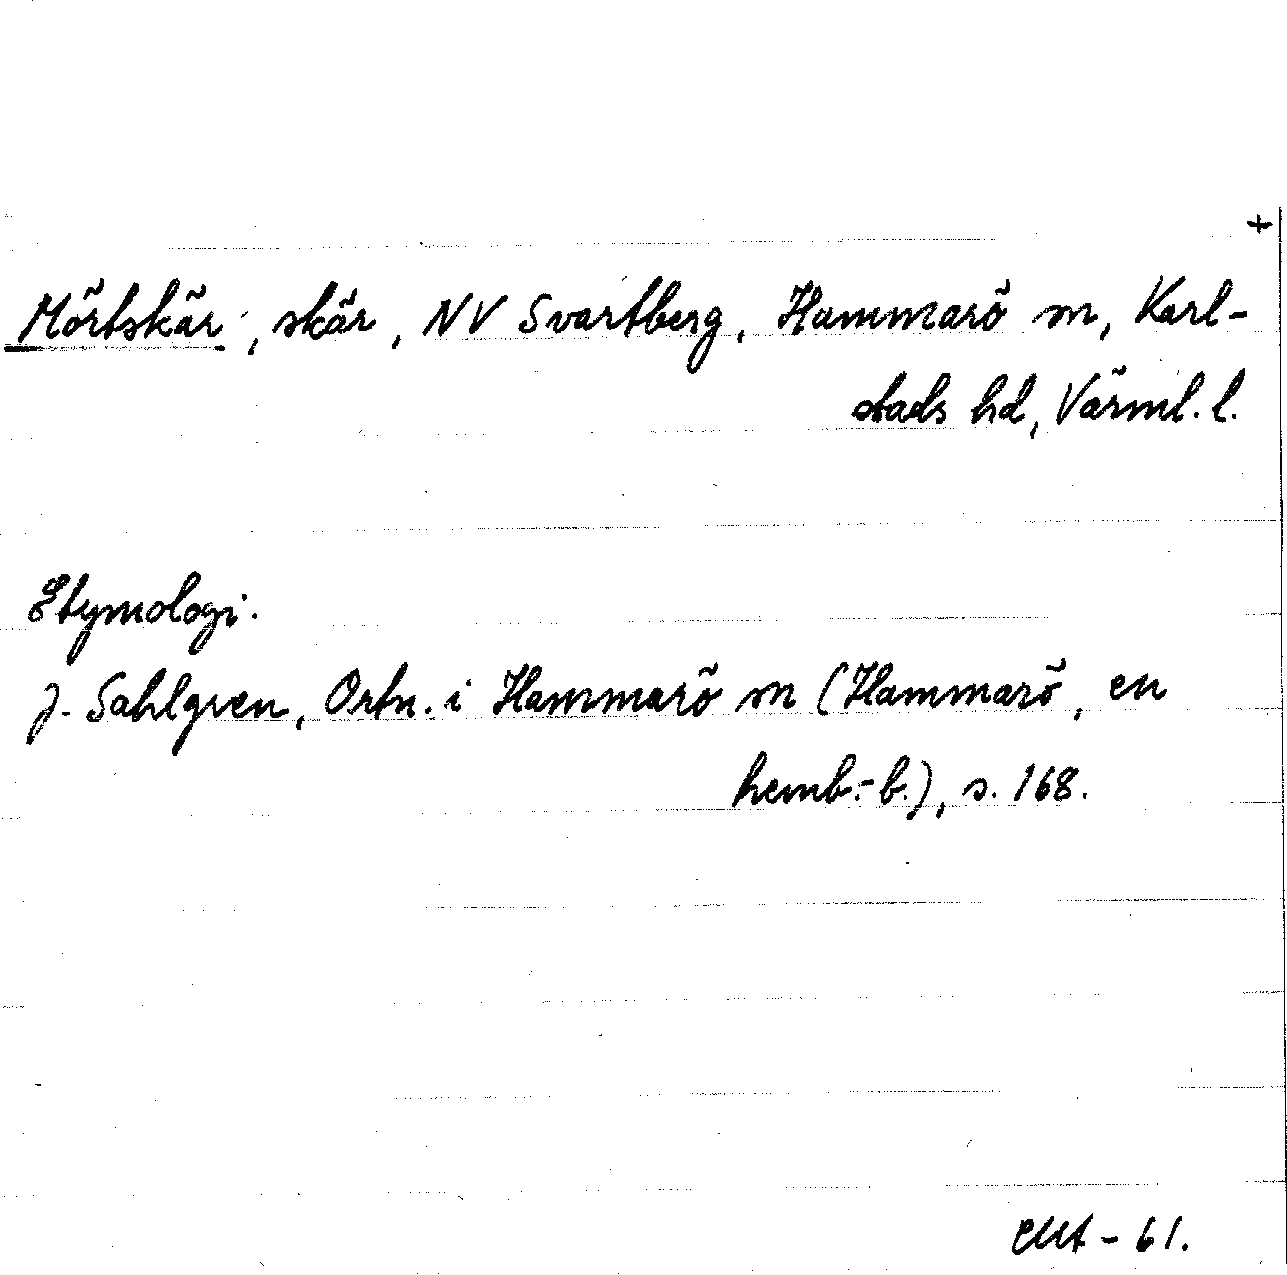 +
Mörtskär, skär, NV Svartberg, Hammarö sn, Karl-
stads hd, Värml. l.
Etymologi.
J. Sahlgren, Ortn. i Hammarö sn (Hammarö, en
hemb.-b.), s. 168.
- 61.